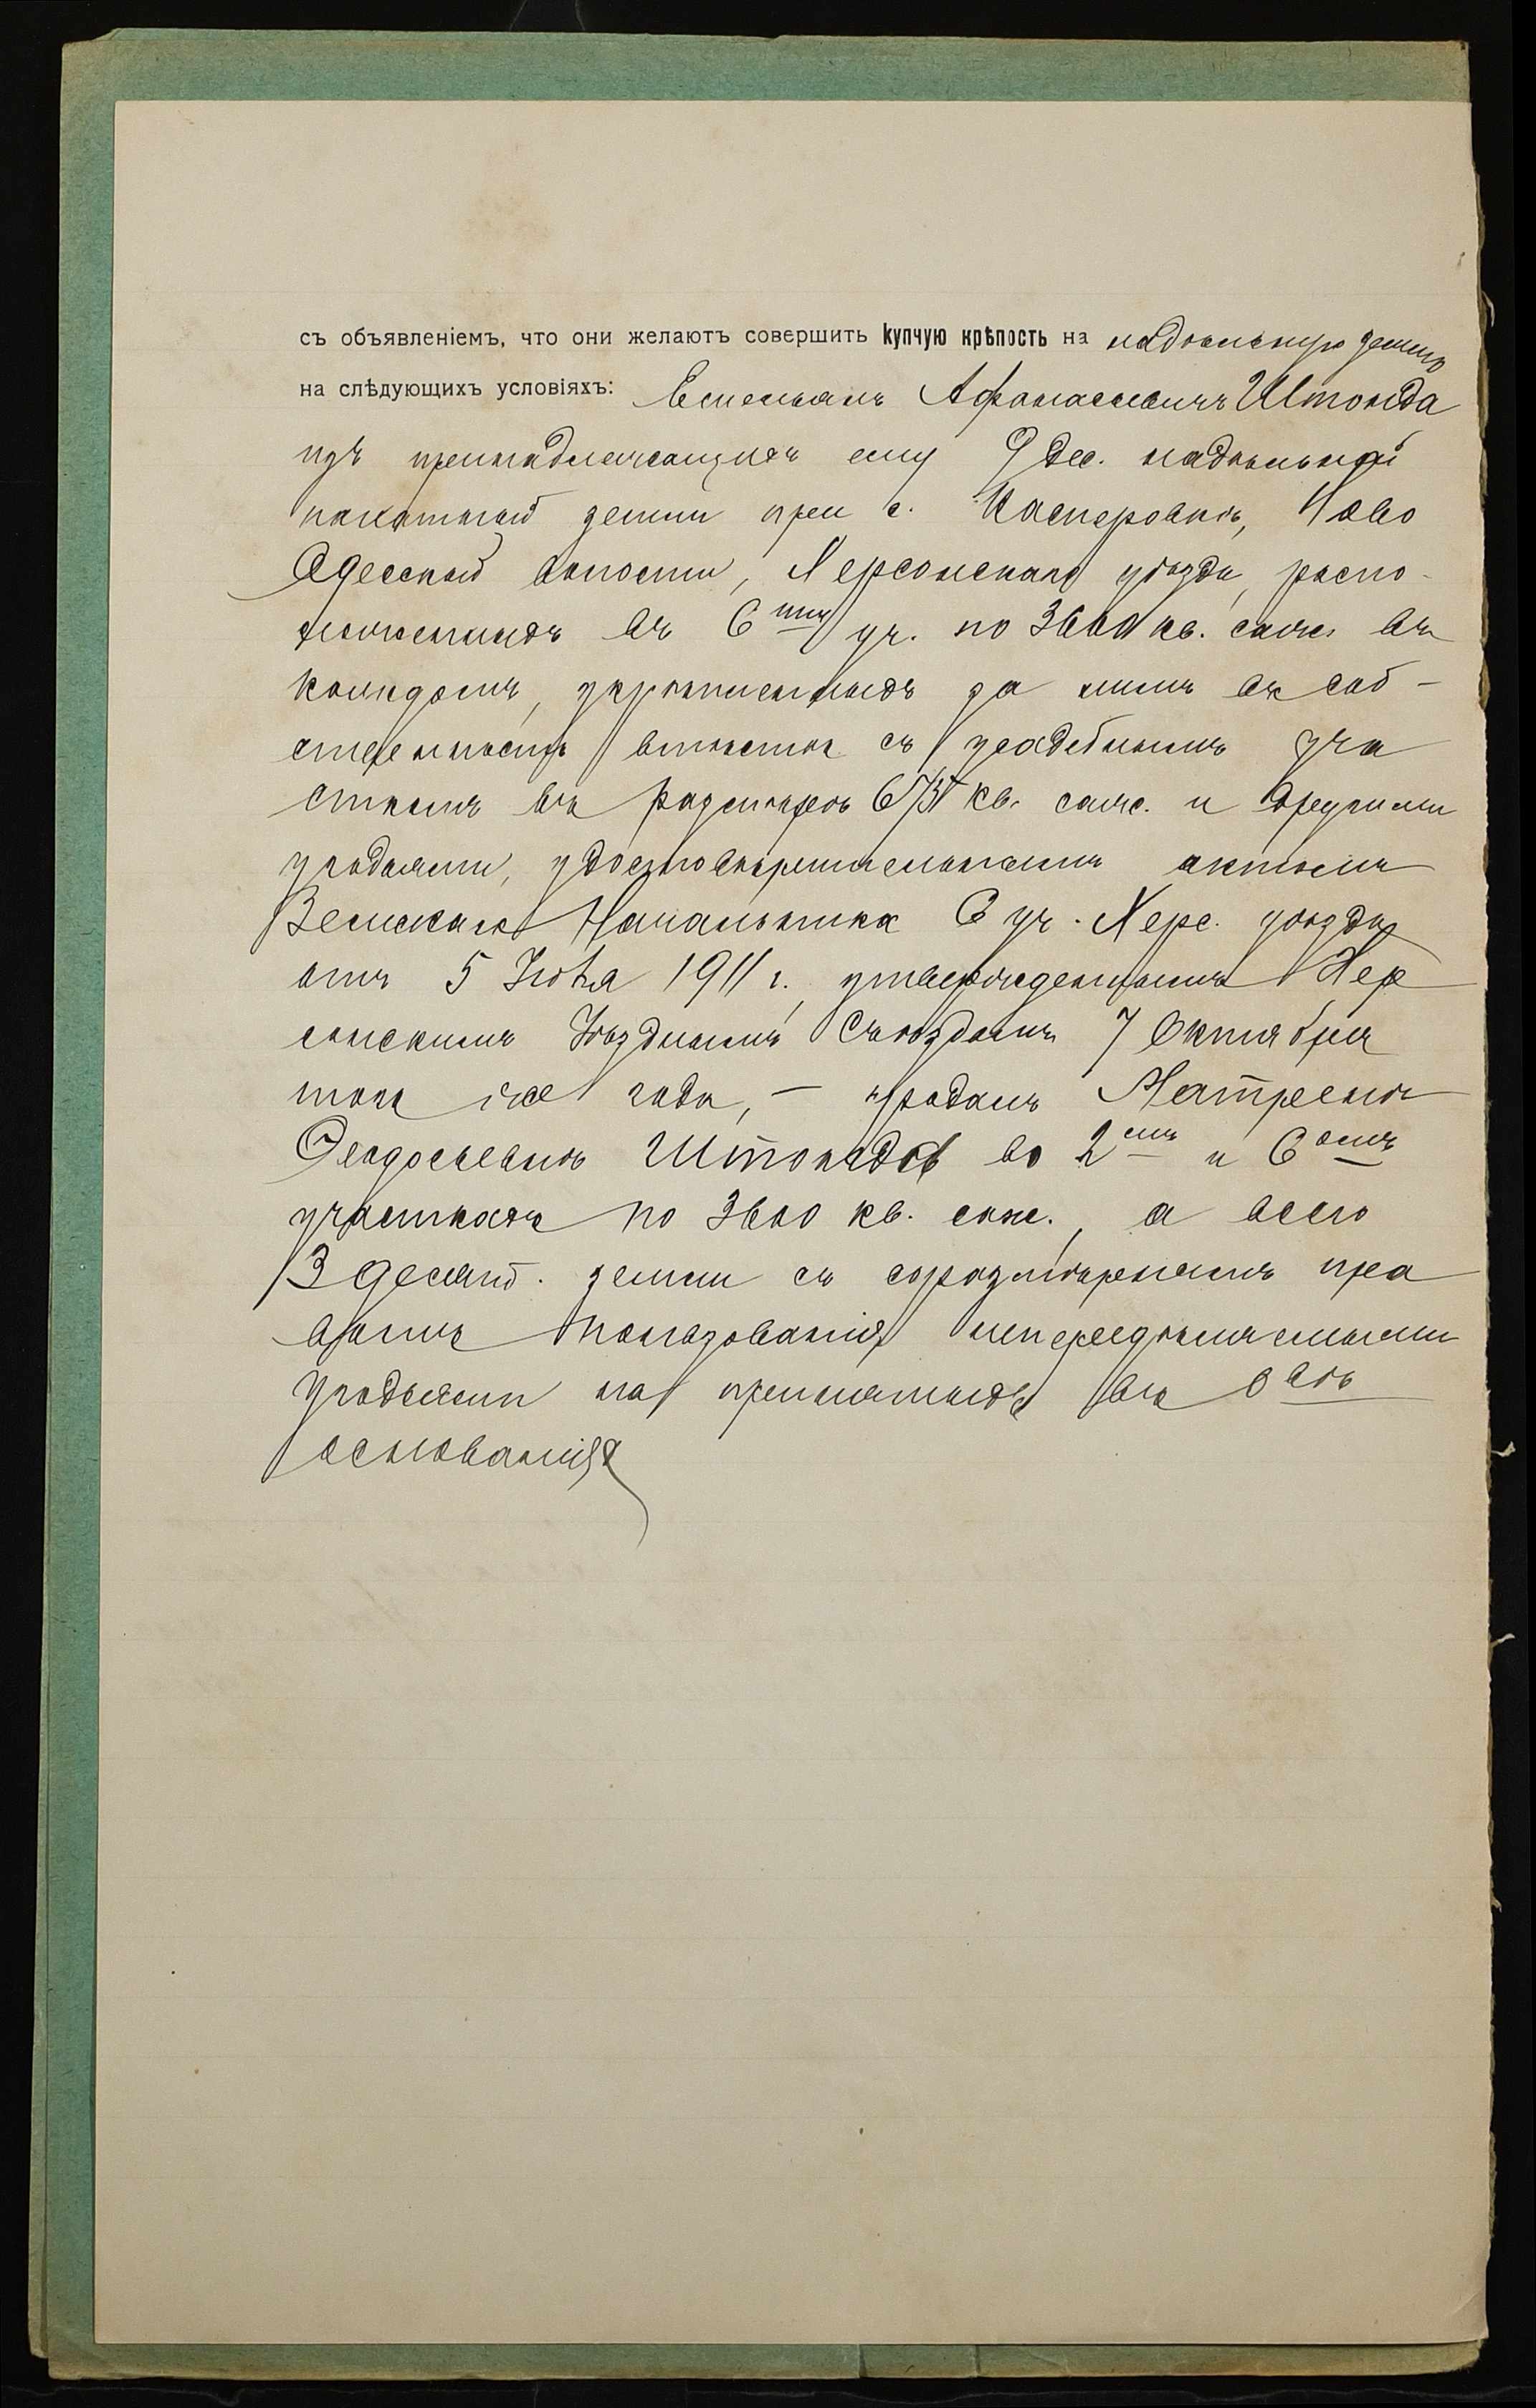 съ объявленіемъ, что они желаютъ совершить купчую крѣпость на надѣльную землю
на слѣдующихъ условіяхъ: Емельянъ Афанасьевичъ Штонда
изъ принадлежащихъ ему 9 дес. надѣльной
пахатной земли при с. Касперовкѣ, Ново
Одесской волости, Херсонскаго уѣзда, распо-
ложенныхъ въ 6ти уч. по 3600 кв. саж. въ
каждомъ, укрѣпленныхъ за нимъ въ соб-
ственность вмѣстѣ съ усадебнымъ уча
сткомъ въ размѣрѣ кв. саж. и другими
угодьями, удостовѣрительнымъ актомъ
Земскаго Начальника 6 уч. Херс. уѣзда
отъ 5 1911 г., утвержденнымъ Хер
сонскимъ Уѣзднымъ Съѣздомъ 7 Октября
того же года, – продалъ Матренѣ
Феодосьевнѣ Штондѣ во 2мъ и 6омъ
участкахъ по 3600 кв. саж., а всего
3 десят. земли съ соразмѣрнымъ пра
вомъ пользованія нераздѣльными
угодьями на принятыхъ въ
основаніях